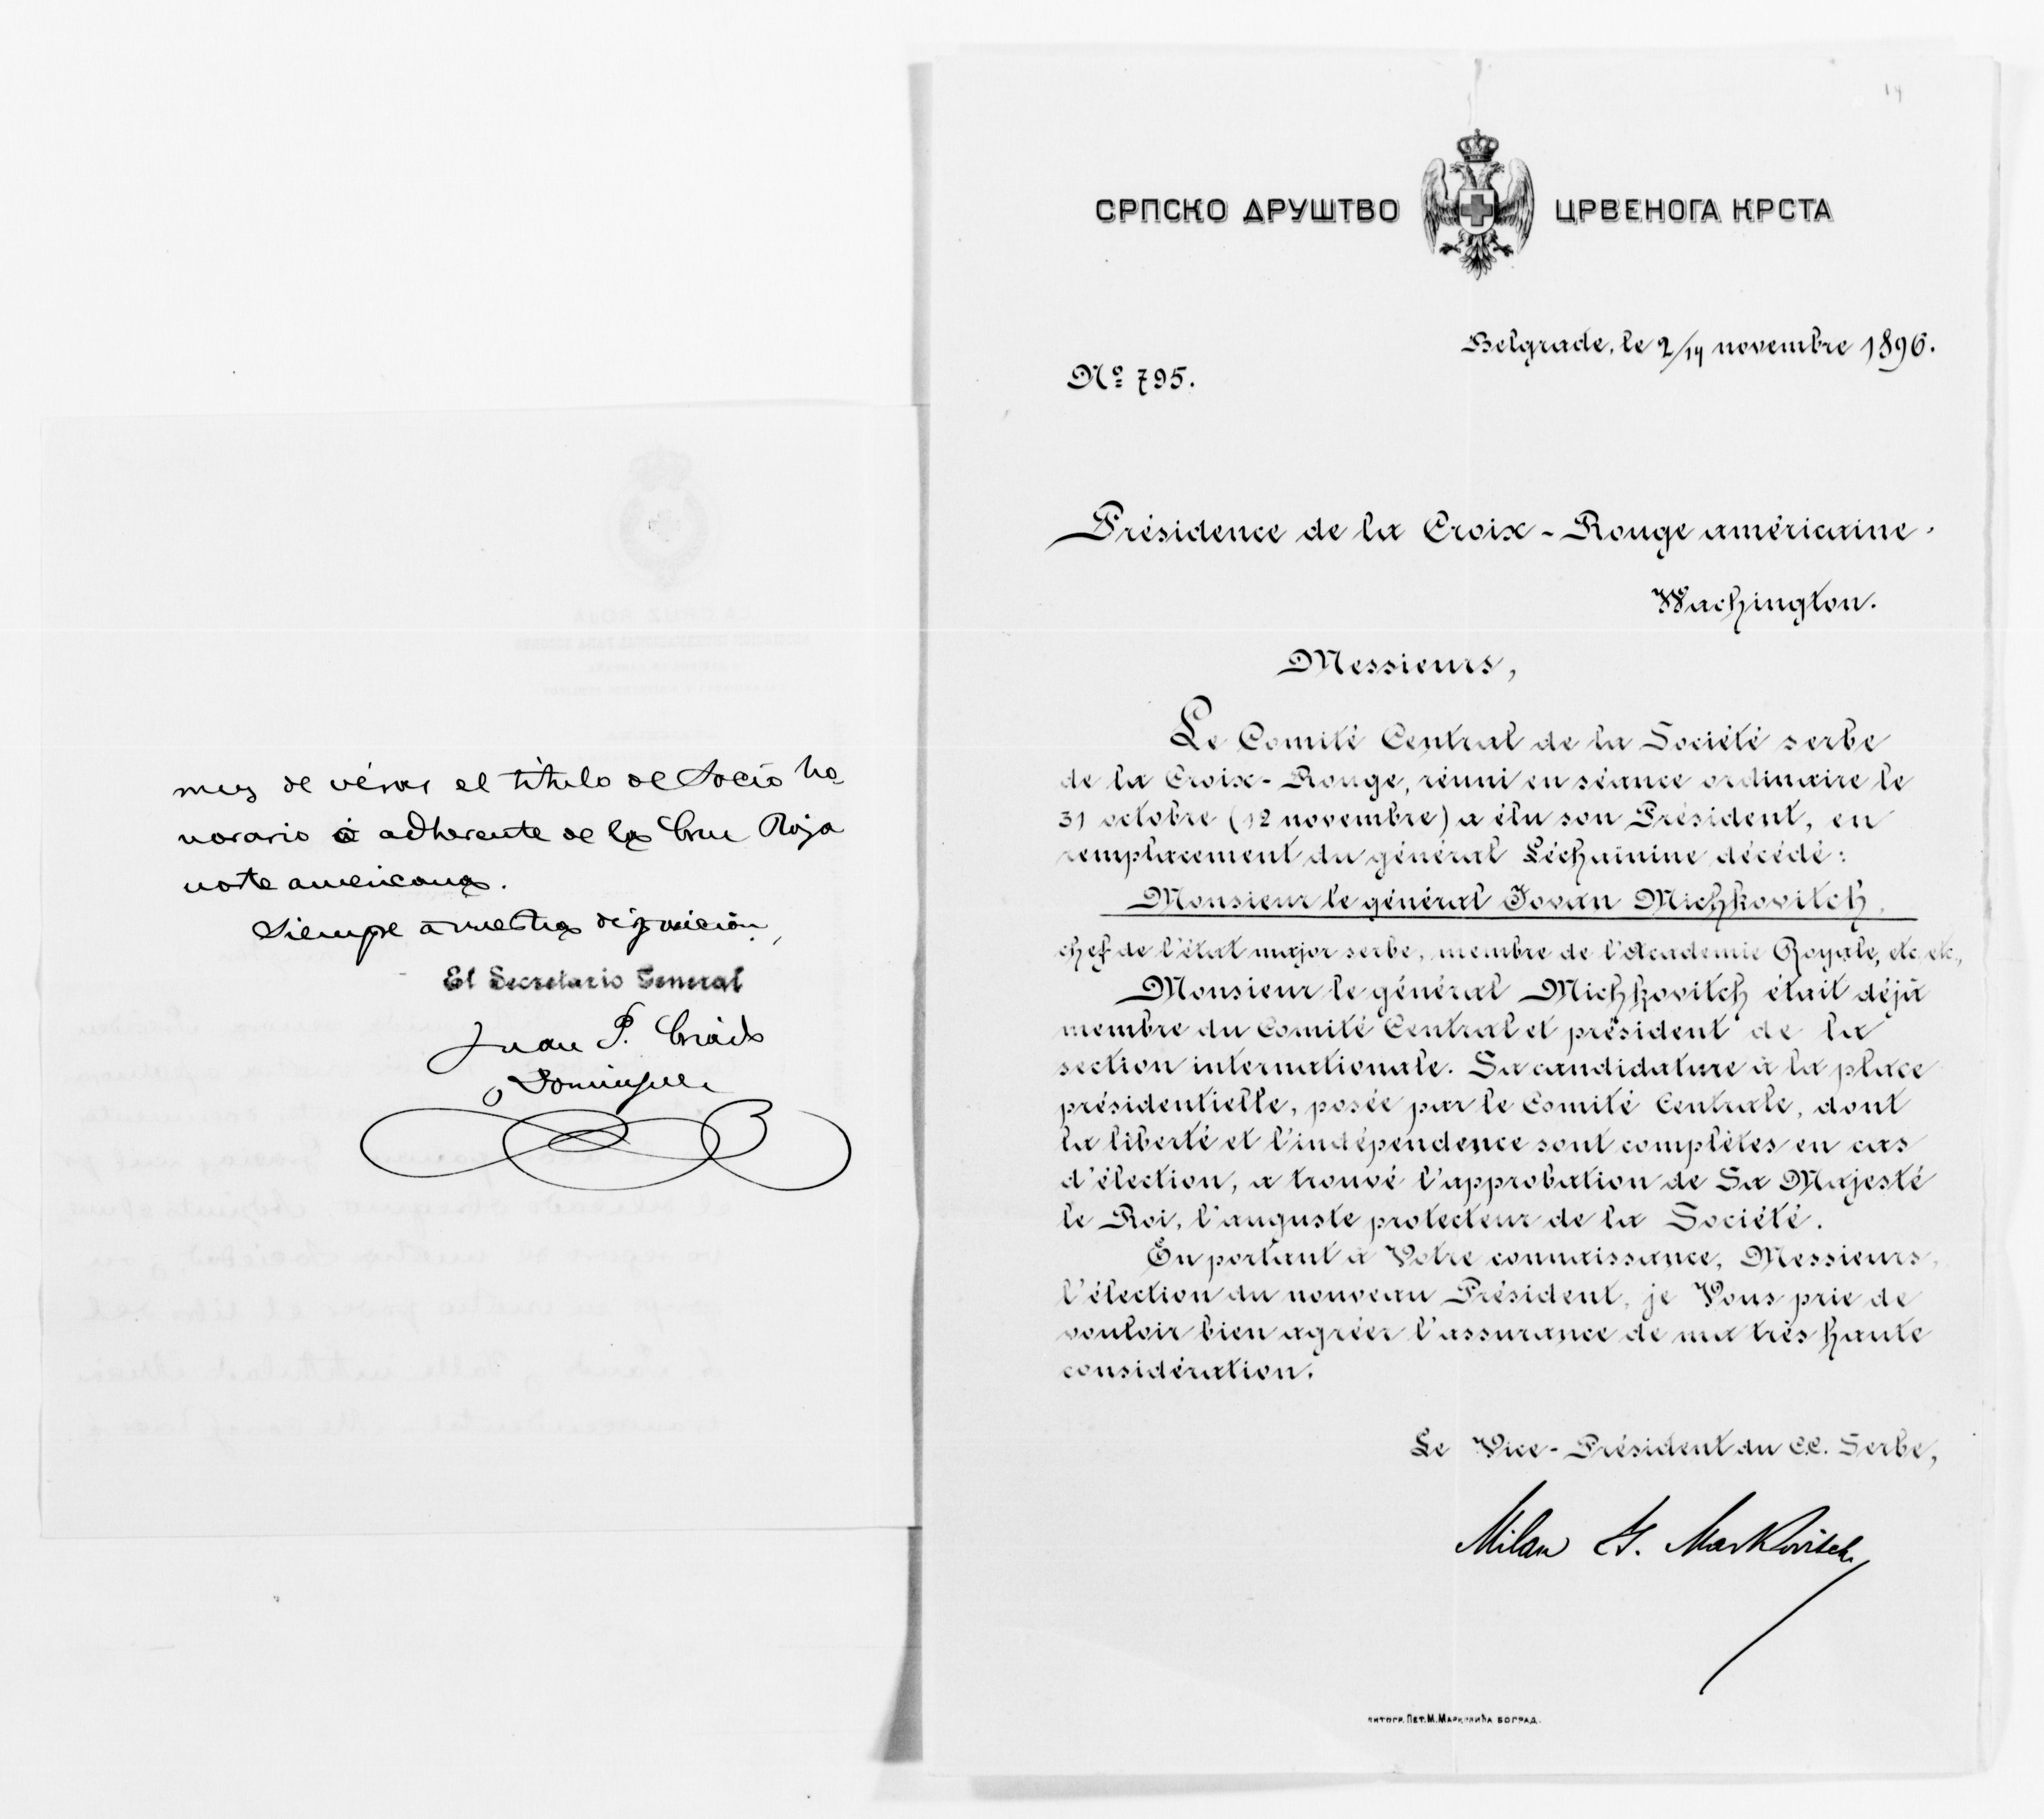 muy de véras el titulo de Socio ho
norario ó adherente de la Cruz Roja
norte americana.
Siempre a vuestra disposición,
El Secretario General
Juan P. Criado
y Dominguez
14
СРПСКО ДРУШТВО ЦРВЕНОГА КРСТА
Belgrade, le 2/14 novembre 1896.
Nº 795.
Présidence de la Croix-Rouge américaine.
Wachington.
Messieurs,
Le Comité Central de la Société serbe
de la Croix-Rouge, réuni en séance ordinaire le
31 octobre (12 novembre) a élu son Président, en
remplacement du général Léchainine décédé:
Monsieur le général Jovan Michkovitch,
chef de l'état major serbe, membre de l'Academie Royale, etc. etc.,
Monsieur le général Michkovitch était déjà
membre du Comité Central et président de la
section internationale. Sa candidature à la place
présidentielle, posée par le Comité Centrale, dont
la liberté et l'indépendence sont complètes en cas
d'élection, a trouvé l'approbation de Sa Majesté
le Roi, l'auguste protecteur de la Société.
En portant à Votre connaissance, Messieurs,
l'élection du nouveau Président, je Vous prie de
vouloir bien agréer l'assurance de ma très haute
considération.
Le Vice-Président du C.C. Serbe,
Milan G. Markovitch
ЛИТОГР. ПЕТ. М. МАРКОВИЋА БОГРАД.